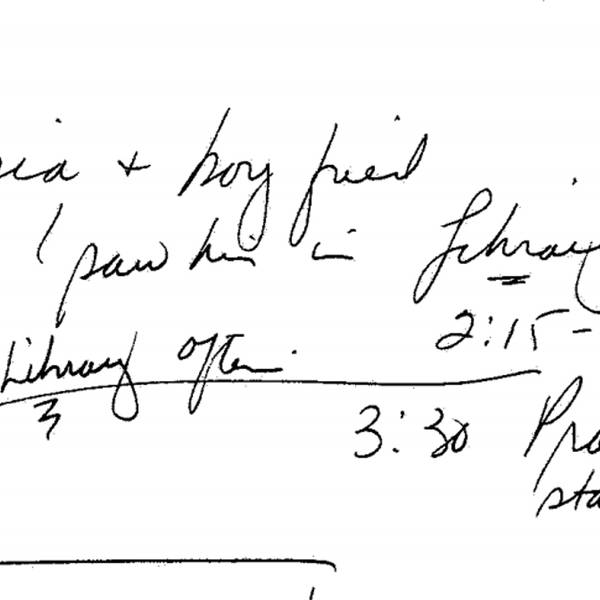 sia + boy fried
saw him in Library
2:15-
Library often.
3
3:30 Pra
sta